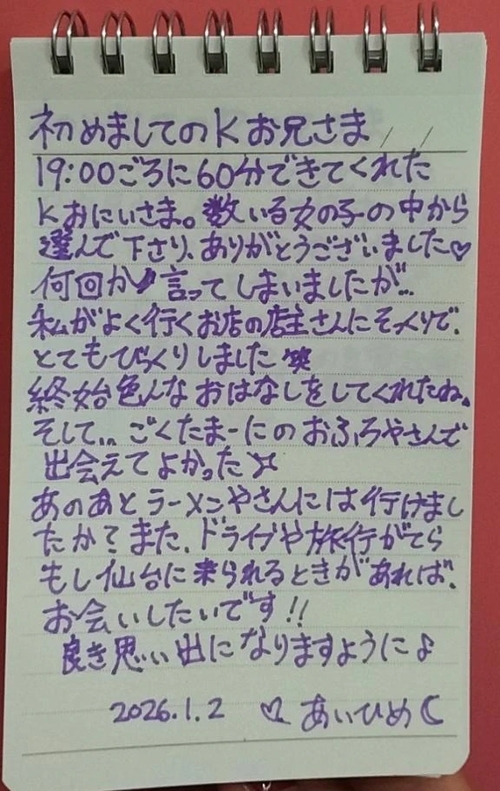 初めましてのKお兄さま//
19:00ごろに60分できてくれた
Kおにいさま。数いる女の子の中から
選んで下さり、ありがとうございました♡
何回か言ってしまいましたが…
私がよく行くお店の店主さんにそっくりで、
とてもびっくりしました笑
終始色んなおはなしをしてくれたね。
そして... ごくたまーにのおふろやさんで
出会えてよかった
あのあと、ラーメンやさんには行けまし
たか?また、ドライブや旅行がてら
もし仙台に来られるときがあれば、
お会いしたいです!!
良き思い出になりますように♪
2026.1.2 ♡あいひめ☾